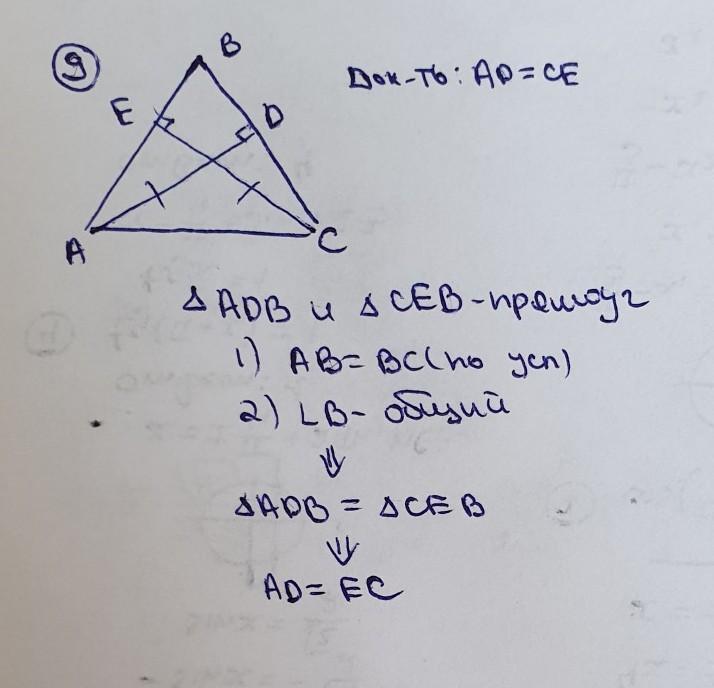 9
B
Док-ть: AD = CE
E
D
A
C
△ ADB и △ CEB - прямоуг
1) AB = BC (по усл)
2) ∠B - общий
⇓
△ADB = △CEB
⇓
AD = EC